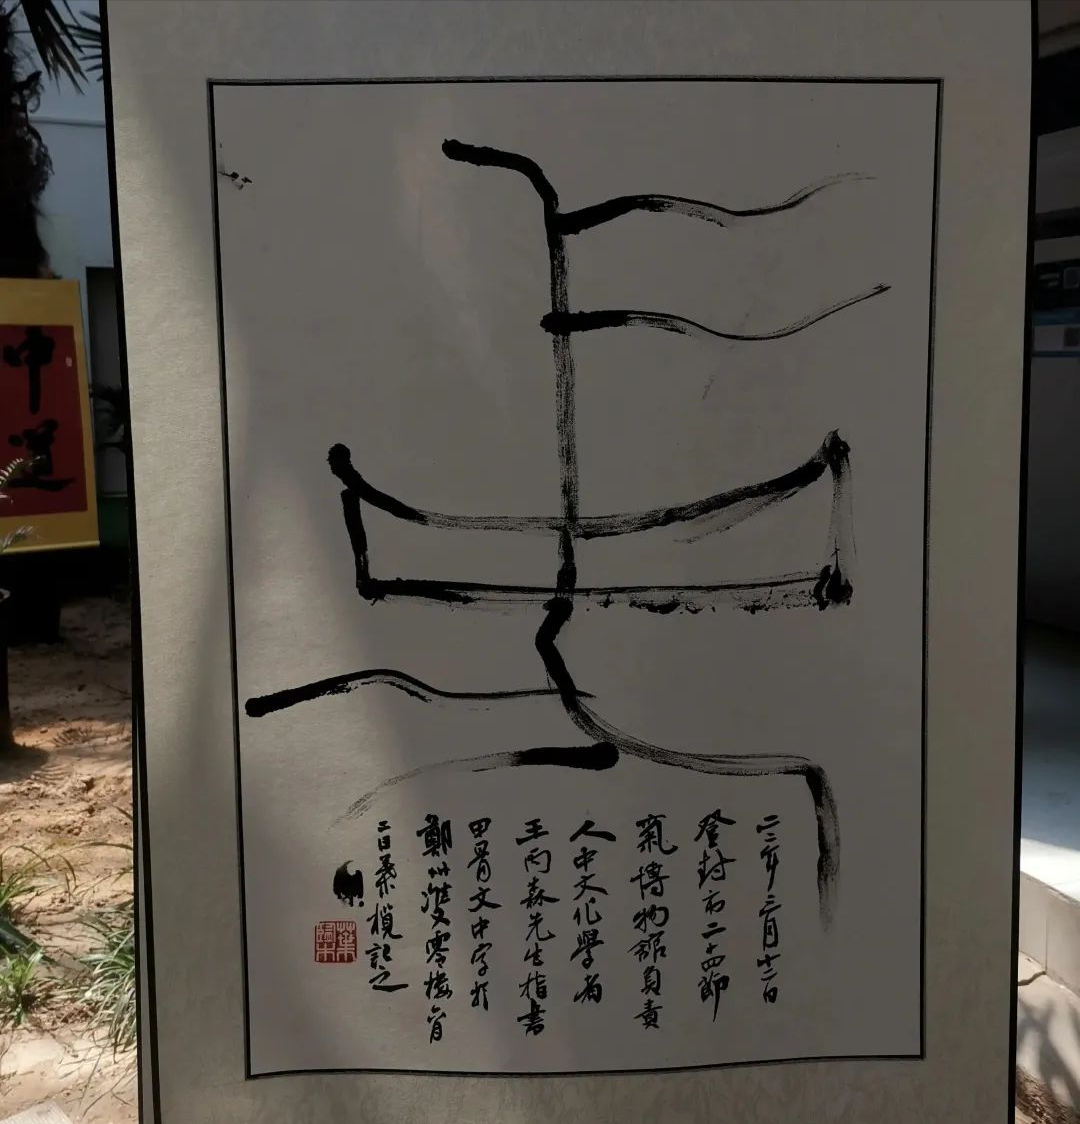 中
二三年三月十二日
登封市二十四節
氣博物館負責
人中文化學者
王丙森先生指書
甲骨文中字於
鄭州雙零樓六月
二日葉欖記之
中道